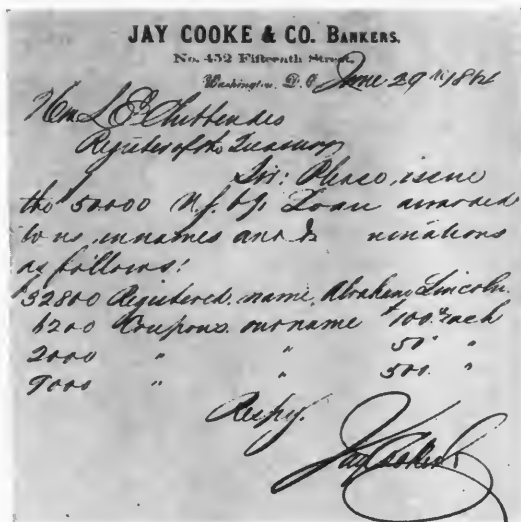 JAY COOKE & CO. BANKERS.
No. 452 Fifteenth Street,
Washington, D.C. June 29th 1864
Hon L E Chittenden
Register of the Treasury
Sir: Please issue
the 50000 U.S. 6% Loan awarded
to us, in names and de nominations
as follows:
32800 Registered name, Abraham Lincoln.
6200 Coupons our name $100 each
2000 " " 50 "
9000 " " 500 "
Respy.
Jay Cooke & Co